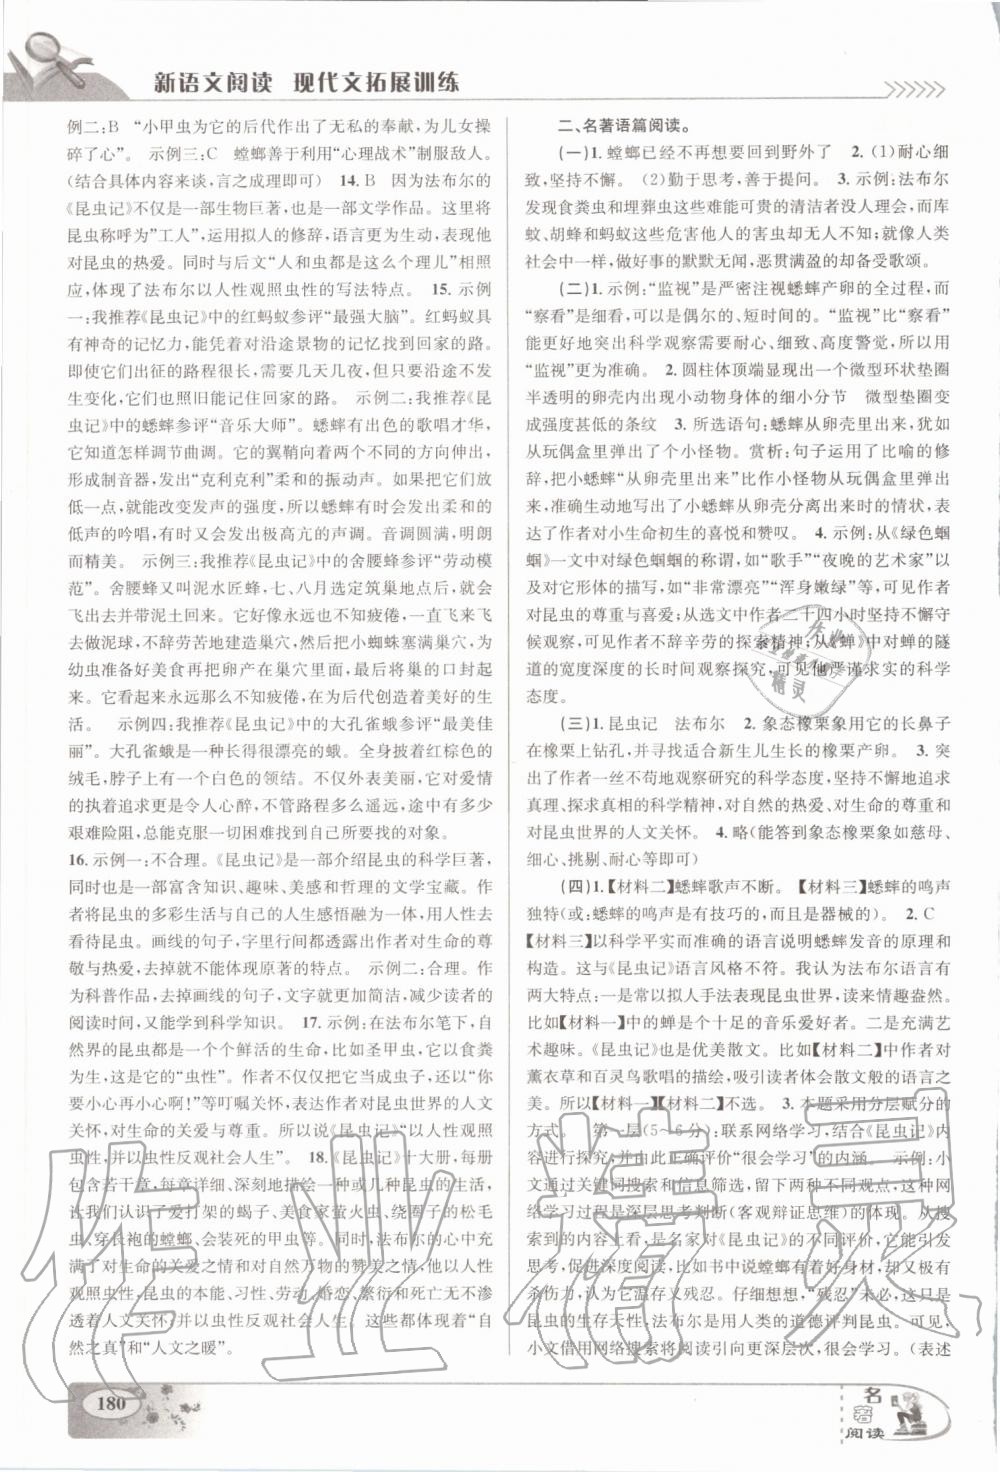 新语文阅读 现代文拓展训练
例二:B “小甲虫为它的后代作出了无私的奉献,为儿女操
碎了心”。 示例三:C 螳螂善于利用“心理战术”制服敌人。
(结合具体内容来谈,言之成理即可) 14. B 因为法布尔的
《昆虫记》不仅是一部生物巨著,也是一部文学作品。这里将
昆虫称呼为”工人”,运用拟人的修辞,语言更为生动,表现他
对昆虫的热爱。同时与后文“人和虫都是这么个理儿”相照
应,体现了法布尔以人性观照虫性的写法特点。 15. 示例
一:我推荐《昆虫记》中的红蚂蚁参评“最强大脑”。红蚂蚁具
有神奇的记忆力,能凭借对沿途景物的记忆找到回家的路。
即使它们出征的路程很长,需要几天几夜,但只要沿途不发
生变化,它们也照旧能记住回家的路。 示例二:我推荐《昆
虫记》中的蟋蟀参评“音乐大师”。蟋蟀有出色的歌唱才华,
它知道怎样调节曲调。它的翼鞘向着两个不同的方向伸出,
形成制音器,发出“克利克利”柔和的振动声。如果把它们放
低一点,就能改变发声的强度,所以蟋蟀有时会发出柔和的
低声的吟唱,有时又会发出极高亢的声调。音调圆满,明朗
而精美。 示例三:我推荐《昆虫记》中的舍腰蜂参评“劳动模
范”。舍腰蜂又叫泥水匠蜂,七、八月选定筑巢地点后,就会
飞出去并带泥土回来。它好像永远也不知疲倦,一直飞来飞
去做泥球,不辞劳苦地建造巢穴,用小蜘蛛塞满巢穴,为
幼虫准备好美食再把卵产在巢穴里面,最后将巢的口封起
来。它看起来永远那么不知疲倦,在为后代创造着美好的生
活。 示例四:我推荐《昆虫记》中的大孔雀蛾参评“最美佳
丽”。大孔雀蛾是个长得很漂亮的蛾。全身披着红棕色的
绒毛,脖子上有一个白色的领结。不仅外表美丽,它对爱情
的执着追求更是令人心醉,不管路程多么遥远,途中有多少
艰难险阻,总能克服一切困难找到自己所追求的对象。
16. 示例一:不合理。《昆虫记》是一部介绍昆虫的科学巨著,
同时也是一部富含知识、趣味、美感和哲理的文学宝藏。作
者将昆虫的多彩生活与自己的人生感悟融为一体,用人性去
看待昆虫。画线的句子,字里行间都透露出作者对生命的尊
敬与热爱,去掉就不能体现原著的特点。 示例二:合理。作
为科普作品,去掉画线的句子,文字就更加简洁,减少读者的
阅读时间,又能学到科学知识。 17. 示例:在法布尔笔下,自
然界的昆虫是一个个鲜活的生命,比如圣甲虫,它以食粪
为生,这是它的“虫性”。作者不仅仅把它当成虫子,还以“你
要小心再小心啊!”等叮嘱关怀,表达作者对昆虫世界的人文
关怀,对生命的关爱与尊重。所以说《昆虫记》“以人性观照
虫性,并以虫性反观社会人生”。 18.《昆虫记》十大册,每册
包含若干章,每章详细、深刻地描绘一种或几种昆虫的生活,
让我们认识了爱打架的蝎子、美食家萤火虫、绕圈子的松毛
虫、穿长袍的螳螂、会装死的甲虫等。同时,法布尔的心中充
满了对生命的关爱之情和对自然万物的赞美之情,他以人性
观照虫性,昆虫的本能、习性、劳动、婚恋、繁衍和死亡无不渗
透着人文关怀,并以虫性反观社会人生。这些都体现了“自
然之真”和“人文之暖”。
二、名著语篇阅读。
(一)1. 螳螂已经不再想要回到野外了 2. (1)耐心细
致,坚持不懈。 (2)勤于思考,善于提问。 3. 示例:法布尔
发现食粪虫和埋葬虫这些难能可贵的清洁者没人理会,而库
蚊、胡蜂和蚂蚁这些危害他人的害虫却无人不知;就像人类
社会中一样,做好事的默默无闻,恶贯满盈的却备受歌颂。
(二)1. 示例:“监视”是严密注视蟋蟀产卵的全过程,而
“察看”是细看,可以是偶尔的、短时间的。“监视”比“察看”
能更好地突出科学观察需要耐心、细致、高度警觉,所以用
“监视”更为准确。 2. 圆柱体顶端显现出一个微型环状垫圈
半透明的卵壳内出现小动物身体的细小分节 微型垫圈变
成强度甚低的条纹 3. 所选语句:蟋蟀从卵壳里出来,犹如
小怪物从玩偶盒里弹出来。赏析:句子运用了比喻的修
辞,把小蟋蟀“从卵壳里出来”比作小怪物从玩偶盒里弹出
来,准确生动地写出了小蟋蟀从卵壳分离出来时的情状,表
达了作者对小生命初生的喜悦和赞叹。 4. 示例:从《绿色蝈
蝈》一文中对绿色蝈蝈的称谓,如“歌手”“夜晚的艺术家”以
及对它形体的描写,如“非常漂亮”“浑身嫩绿”等,可见作者
对昆虫的尊重与喜爱;从选文中作者二十四小时坚持不懈守
候观察,可见作者不辞辛劳的探索精神;从《蝉》中对蝉的隧
道的宽度深度的长时间观察探究,可见他严谨求实的科学
态度。
(三)1. 昆虫记 法布尔 2. 象态橡栗象用它的长鼻子
在橡栗上钻孔,并寻找适合新生儿生长的橡栗产卵。 3. 突
出了作者一丝不苟地观察研究的科学态度,坚持不懈地追求
真理、探求真相的科学精神,对自然的热爱、对生命的尊重和
对昆虫世界的人文关怀。 4. 略(能答到象态橡栗象如慈母、
细心、挑剔、耐心等即可)
(四)1.【材料二】蟋蟀歌声不断。【材料三】蟋蟀的鸣声
独特(或:蟋蟀的鸣声是有技巧的,而且是器械的)。 2. C
【材料三】以科学平实而准确的语言说明蟋蟀发音的原理和
构造。这与《昆虫记》语言风格不符。我认为法布尔语言有
两大特点:一是常以拟人手法表现昆虫世界,读来情趣盎然。
比如【材料一】中的蝉是个十足的音乐爱好者。二是充满艺
术趣味。《昆虫记》也是优美散文。比如【材料二】中作者对
薰衣草和百灵鸟歌唱的描绘,吸引读者体会散文般的语言之
美。所以【材料一】【材料二】不选。 3. 本题采用分层赋分的
方式。 第一层(5~6分):联系网络学习,结合《昆虫记》内
容进行探究,并由此正确评价“很会学习”的内涵。 示例:小
文通过关键词搜索和信息筛选,留下两种不同观点,这种网
络学习的过程是深层思考判断(客观辩证思维)的体现。从搜
索到的内容上看,是名家对《昆虫记》的不同评价,它们能引
起思考,促进深度阅读,比如书中说螳螂有着好身材,却又具有
杀伤力,认为它温存又残忍。仔细想想,“残忍”未必,这只是
昆虫的生存天性,法布尔是用人类的道德评判昆虫。可见,
小文借用网络搜索将阅读引向更深层次,很会学习。(表述
180
名著
阅读
作业精灵